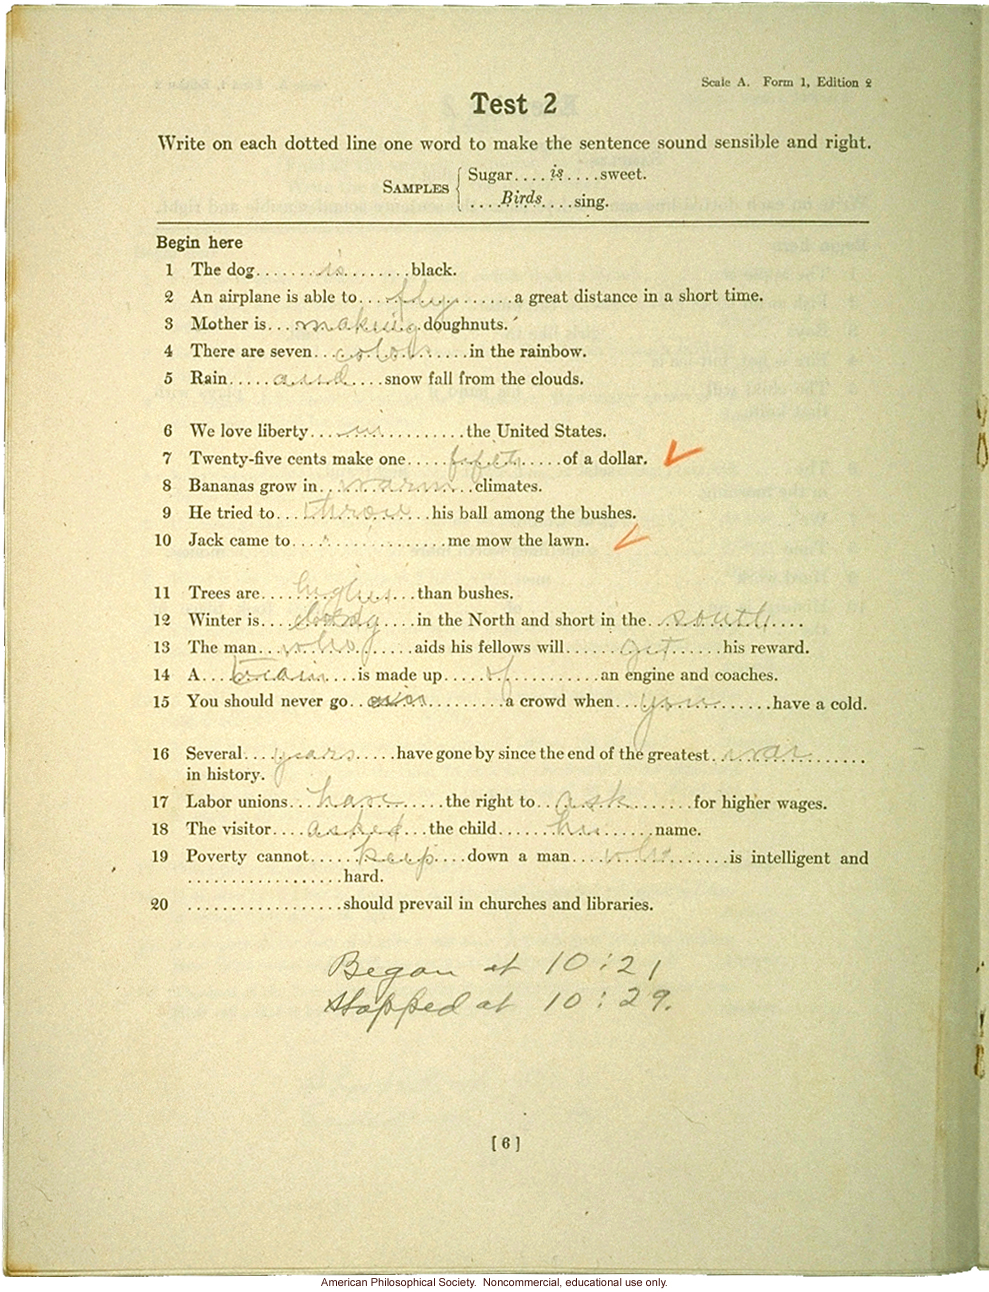 Scale A. Form 1, Edition 2
Test 2
Write on each dotted line one word to make the sentence sound sensible and right.
SAMPLES { Sugar.... is ....sweet.
.... Birds ....sing.
Begin here
1 The dog....... is ........black.
2 An airplane is able to.... fly ......a great distance in a short time.
3 Mother is... making .doughnuts.
4 There are seven... colors ......in the rainbow.
5 Rain..... and ....snow fall from the clouds.
6 We love liberty.... in ..........the United States.
7 Twenty-five cents make one..... fifth .....of a dollar. ✓
8 Bananas grow in.. warm ..climates.
9 He tried to... throw ..his ball among the bushes.
10 Jack came to.................me mow the lawn. ✓
11 Trees are.... higher ...than bushes.
12 Winter is.... long ....in the North and short in the. south ....
13 The man... who .....aids his fellows will...... get ......his reward.
14 A... train ...is made up..... of ..........an engine and coaches.
15 You should never go.. in .........a crowd when... you .......have a cold.
16 Several.... years .....have gone by since the end of the greatest. war ......
in history.
17 Labor unions... have .....the right to.. ask .......for higher wages.
18 The visitor.... asked ...the child...... his ......name.
19 Poverty cannot..... keep ....down a man.... who .......is intelligent and
.................hard.
20 .................should prevail in churches and libraries.
Began at 10:21
Stopped at 10:29.
[ 6 ]
American Philosophical Society. Noncommercial, educational use only.